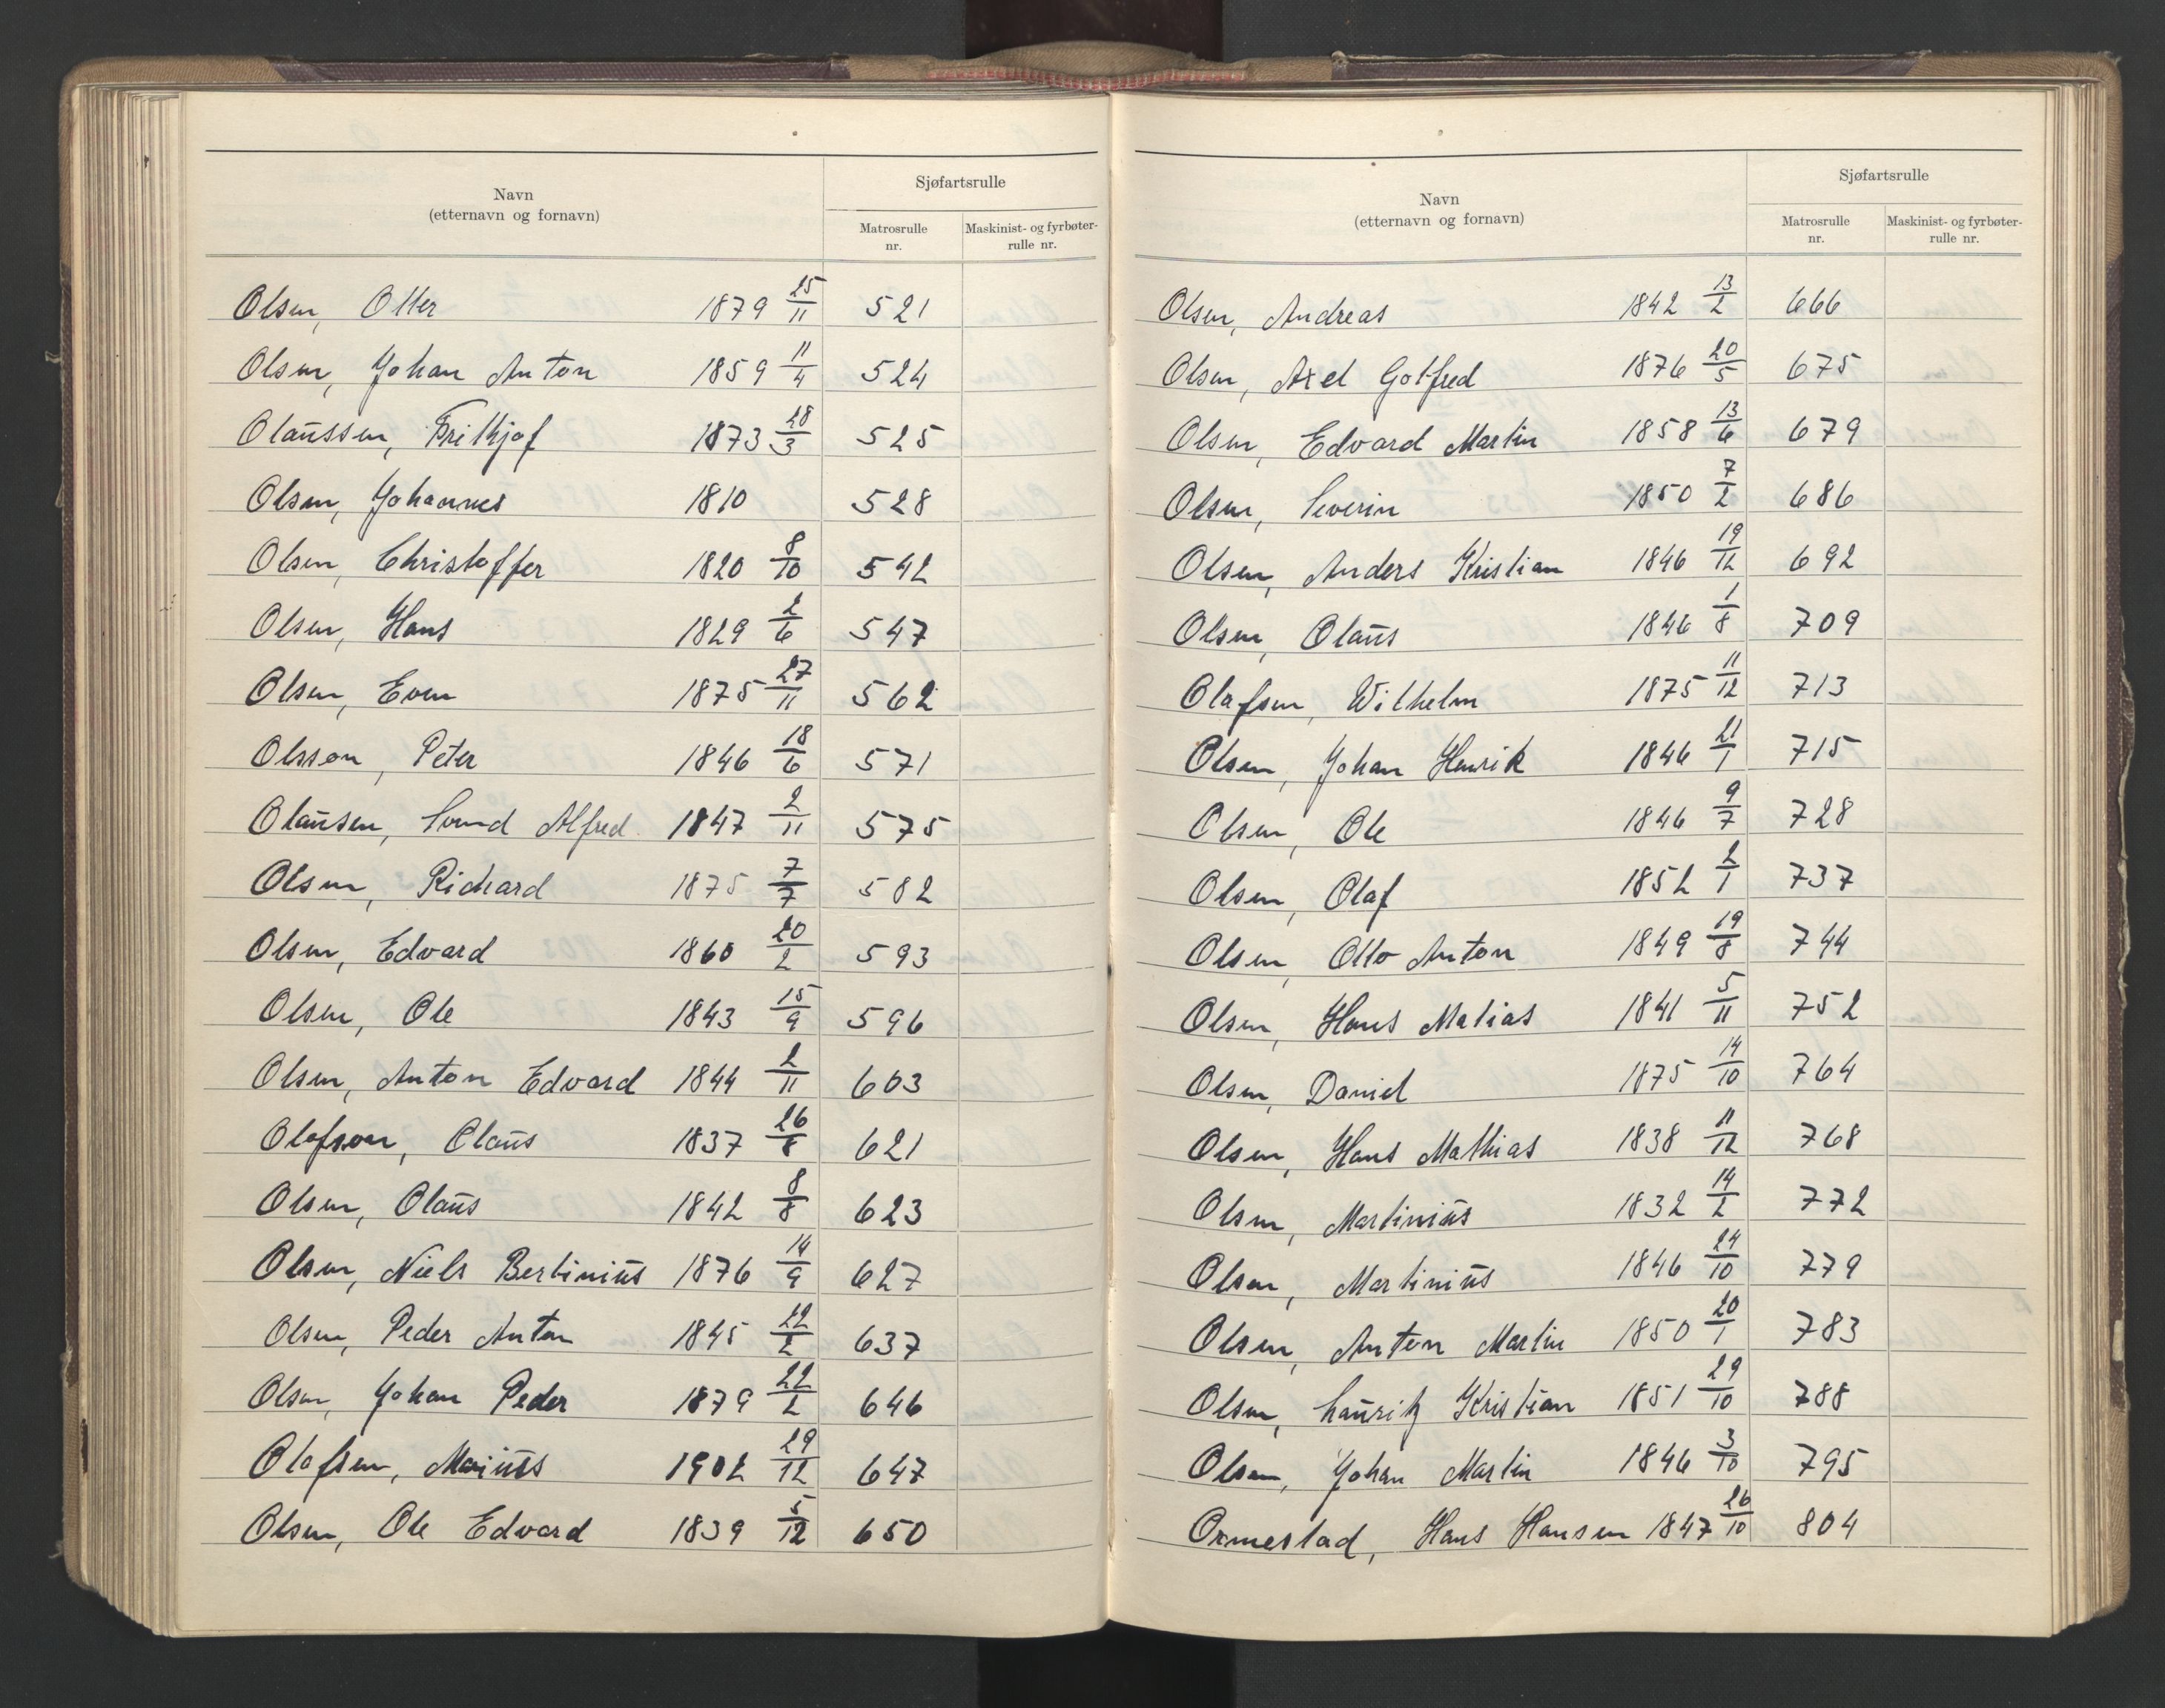 Navn
(etternavn og fornavn)
Sjøfartsrulle
Matrosrulle
nr.
Maskinist- og fyrbøter-
rulle nr.
Olsen, Otter 1879 25/11 521
Olsen, Johan Anton 1859 11/4 524
Olaŭssen, Frithjof 1873 28/3 525
Olsen, Johannes 1810 528
Olsen, Christoffer 1820 8/10 542
Olsen, Hans 1829 2/6 547
Olsen, Even 1875 27/11 562
Olsson, Peter 1846 18/6 571
Olaŭsen, Svend Alfred 1847 2/11 575
Olsen, Richard 1875 7/7 582
Olsen, Edvard 1860 20/2 593
Olsen, Ole 1843 15/9 596
Olsen, Anton Edvard 1844 2/11 603
Olafson, Olaŭs 1837 26/8 621
Olsen, Olaŭs 1842 8/8 623
Olsen, Niels Bertiniŭs 1876 14/9 627
Olsen, Peder Anton 1845 22/2 637
Olsen, Johan Peder 1879 22/2 646
Olafsen, Mariŭs 1902 29/12 647
Olsen, Ole Edvard 1839 5/12 650
Navn
(etternavn og fornavn)
Sjøfartsrulle
Matrosrulle
nr.
Maskinist- og fyrbøter-
rulle nr.
Olsen, Andreas 1842 13/2 666
Olsen, Axel Gotfred 1876 20/5 675
Olsen, Edvard Martin 1858 13/6 679
Olsen, Severin 1850 7/2 686
Olsen, Anders Kristian 1846 19/12 692
Olsen, Olaŭs 1846 1/8 709
Olafsen, Wilhelm 1875 11/12 713
Olsen, Johan Henrik 1846 21/1 715
Olsen, Ole 1846 9/7 728
Olsen, Olaf 1852 2/1 737
Olsen, Otto Anton 1849 19/8 744
Olsen, Hans Matias 1841 5/11 752
Olsen, Daniel 1875 14/10 764
Olsen, Hans Mathias 1838 11/12 768
Olsen, Martiniŭs 1832 14/2 772
Olsen, Martiniŭs 1846 24/10 779
Olsen, Anton Martin 1850 20/1 783
Olsen, Laŭritz Kristian 1851 29/10 788
Olsen, Johan Martin 1846 3/10 795
Ormestad, Hans Hansen 1847 26/10 804